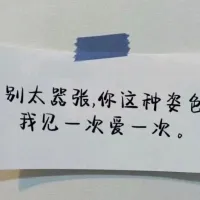 别太嚣张,你这种姿色
我见一次爱一次。